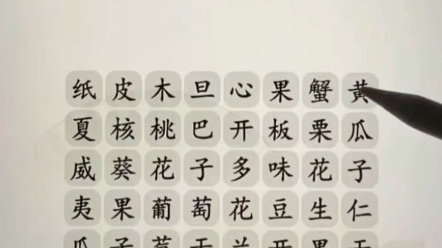 纸皮木旦心果蟹黄
夏核桃巴开板栗瓜
威葵花子多味花子
夷果葡萄花豆生仁